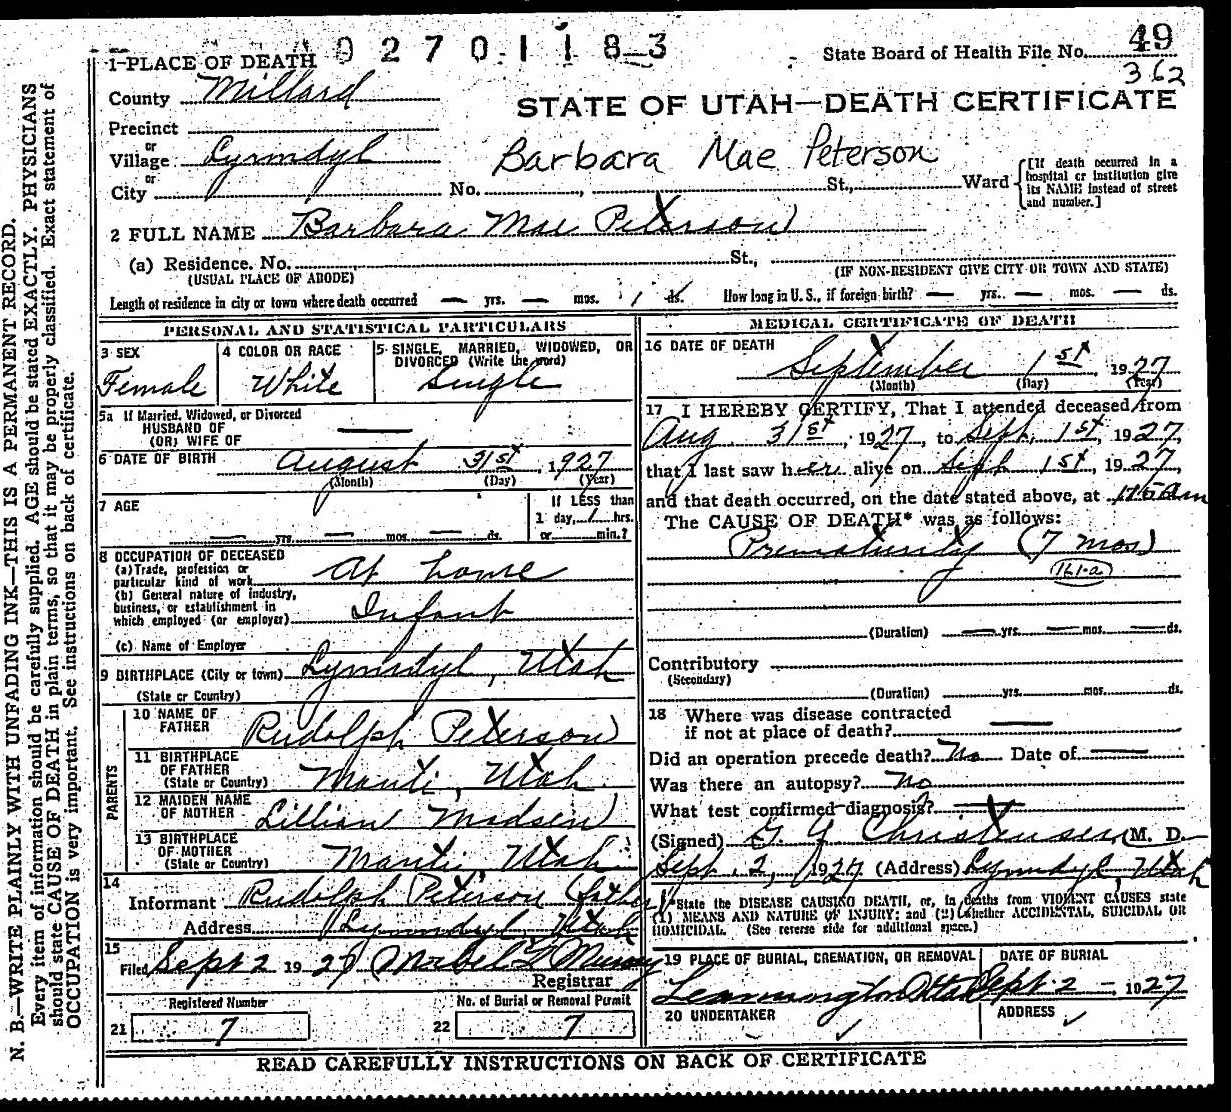 02701183
State Board of Health File No. 49
362
1-PLACE OF DEATH
County Millard
STATE OF UTAH—DEATH CERTIFICATE
Precinct
or
Village Lynndyl
Barbara Mae Peterson
or
City No. St., Ward
[If death occurred in a hospital or institution give its NAME instead of street and number.]
2 FULL NAME Barbara Mae Peterson
(a) Residence. No. St.,
(USUAL PLACE OF ABODE) (IF NON-RESIDENT GIVE CITY OR TOWN AND STATE)
Length of residence in city or town where death occurred — yrs. — mos. 1 ds. How long in U. S., if foreign birth? — yrs. — mos. — ds.
PERSONAL AND STATISTICAL PARTICULARS
3 SEX 4 COLOR OR RACE 5 SINGLE, MARRIED, WIDOWED, OR
DIVORCED (Write the word)
Female White Single
5a If Married, Widowed, or Divorced
HUSBAND OF
(OR) WIFE OF —
6 DATE OF BIRTH August 31st, 1927
(Month) (Day) (Year)
7 AGE If LESS than
1 day, 1 hrs.
— yrs. — mos. — ds. or min.?
8 OCCUPATION OF DECEASED
(a) Trade, profession or
particular kind of work At home
(b) General nature of industry,
business, or establishment in
which employed (or employer) Infant
(c) Name of Employer
9 BIRTHPLACE (City or town) Lynndyl, Utah
(State or Country)
PARENTS
10 NAME OF
FATHER Rudolph Peterson
11 BIRTHPLACE
OF FATHER
(State or Country) Manti, Utah.
12 MAIDEN NAME
OF MOTHER Lillian Madsen
13 BIRTHPLACE
OF MOTHER
(State or Country) Manti, Utah.
14
Informant Rudolph Peterson (father)
Address Lynndyl, Utah
15
Filed Sept 2 1927 Mabel F Murray
Registrar
Registered Number No. of Burial or Removal Permit
21 7 22 7
MEDICAL CERTIFICATE OF DEATH
16 DATE OF DEATH
September 1st 1927
(Month) (Day) (Year)
17 I HEREBY CERTIFY, That I attended deceased from
Aug. 31st, 1927, to Sept. 1st, 1927,
that I last saw her alive on Sept 1st, 1927,
and that death occurred, on the date stated above, at am
The CAUSE OF DEATH* was as follows:
Prematurity (7 mos)
161-a
(Duration) — yrs. — mos. — ds.
Contributory
(Secondary)
(Duration) yrs. mos. ds.
18 Where was disease contracted
if not at place of death? —
Did an operation precede death? No Date of —
Was there an autopsy? No
What test confirmed diagnosis? —
(Signed) G. Y. Christensen, M. D.
Sept. 2, 1927 (Address) Lynndyl, Utah
*State the DISEASE CAUSING DEATH, or, in deaths from VIOLENT CAUSES state
(1) MEANS AND NATURE OF INJURY; and (2) whether ACCIDENTAL, SUICIDAL OR
HOMICIDAL. (See reverse side for additional space.)
19 PLACE OF BURIAL, CREMATION, OR REMOVAL DATE OF BURIAL
Leamington Utah Sept. 2 —, 1927
20 UNDERTAKER ADDRESS
READ CAREFULLY INSTRUCTIONS ON BACK OF CERTIFICATE
N. B.—WRITE PLAINLY WITH UNFADING INK—THIS IS A PERMANENT RECORD.
Every item of information should be carefully supplied. AGE should be stated EXACTLY. PHYSICIANS
should state CAUSE OF DEATH in plain terms, so that it may be properly classified. Exact statement of
OCCUPATION is very important. See instructions on back of certificate.